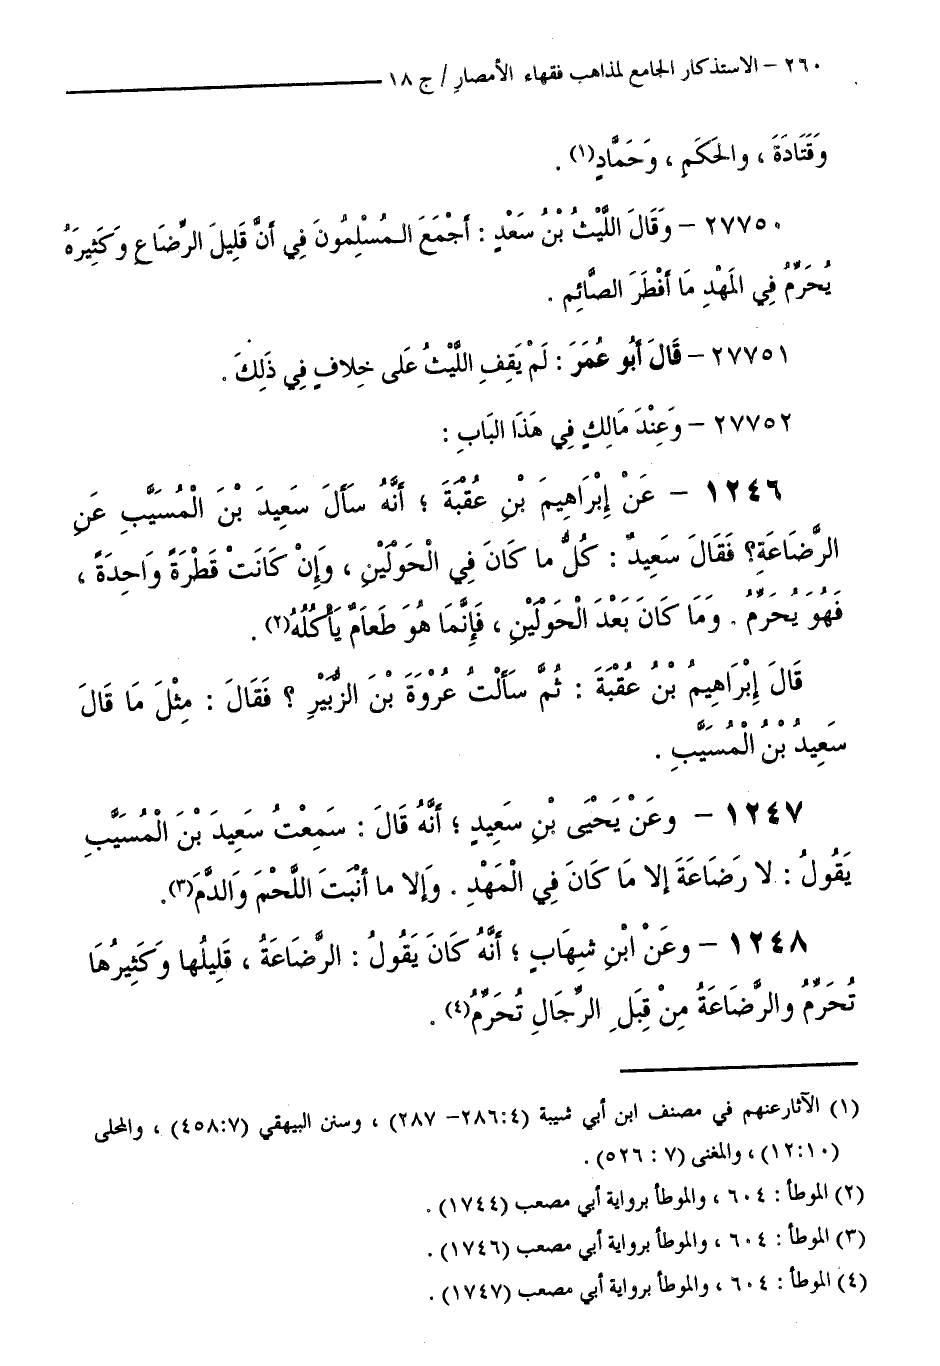 ٢٦٠ – الاستذكار الجامع لمذاهب فقهاء الأمصارِ / ج ١٨
وَقَتَادَةَ ، والحَكَمِ ، وَحَمَّادٍ(١) .
٢٧٧٥٠ – وَقَالَ اللَّيْثُ بْنُ سَعْدٍ : أَجْمَعَ المُسْلِمُونَ فِي أَنَّ قَلِيلَ الرِّضَاعِ وَكَثِيرَهُ
يُحَرِّمُ فِي المَهْدِ مَا أَفْطَرَ الصَّائِم .
٢٧٧٥١ – قَالَ أَبُو عُمَرَ : لَمْ يَقِفِ اللَّيْثُ عَلى خِلافٍ فِي ذَلِكَ .
٢٧٧٥٢ – وَعِنْدَ مَالِكٍ فِي هَذَا البَابِ :
١٢٤٦ – عَنْ إِبْرَاهِيمَ بْنِ عُقْبَةَ ؛ أَنَّهُ سَأَلَ سَعِيدَ بْنَ الْمُسَيَّبِ عَنِ
الرَّضَاعَةِ؟ فَقَالَ سَعِيدٌ : كُلُّ ما كَانَ فِي الْحَوْلَيْنِ ، وَإِنْ كَانَتْ قَطْرَةً وَاحِدَةً ،
فَهُوَ يُحَرِّمُ . وَمَا كَانَ بَعْدَ الْحَوْلَيْنِ ، فَإِنَّمَا هُوَ طَعَامٌ يَأْكُلُهُ(٢) .
قَالَ إِبْرَاهِيمُ بْنُ عُقْبَةَ : ثُمَّ سَأَلْتُ عُرْوَةَ بْنَ الزُّبَيْرِ ؟ فَقَالَ : مِثْلَ مَا قَالَ
سَعِيدُ بْنُ الْمُسَيَّبِ .
١٢٤٧ – وعَنْ يَحْيَى بْنِ سَعِيدٍ ؛ أَنَّهُ قَالَ : سَمِعْتُ سَعِيدَ بْنَ الْمُسَيَّبِ
يَقُولُ : لا رَضَاعَةَ إلا مَا كَانَ فِي الْمَهْدِ . وَإلا ما أَنْبَتَ اللَّحْمَ وَالدَّمَ(٣).
١٢٤٨ – وعَنْ ابْنِ شِهَابٍ ؛ أَنَّهُ كَانَ يَقُولُ : الرَّضَاعَةُ ، قَلِيلُها وَكَثِيرُهَا
تُحَرِّمُ والرَّضَاعَةُ مِنْ قِبَلِ الرِّجَالِ تُحَرِّمُ(٤) .
(١) الآثارعنهم في مصنف ابن أبي شيبة (٢٨٦:٤– ٢٨٧) ، وسنن البيهقي (٤٥٨:٧) ، والمحلى
(١٢:١٠) ، والمغنى (٧ : ٥٢٦) .
(٢) الموطأ : ٦٠٤ ، والموطأ برواية أبي مصعب (١٧٤٤) .
(٣) الموطأ : ٦٠٤ ، والموطأ برواية أبي مصعب (١٧٤٦) .
(٤) الموطأ : ٦٠٤ ، والموطأ برواية أبي مصعب (١٧٤٧) .